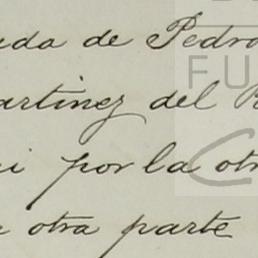 ada de Pedro
artinez del R
i por la otr
otra parte
FU